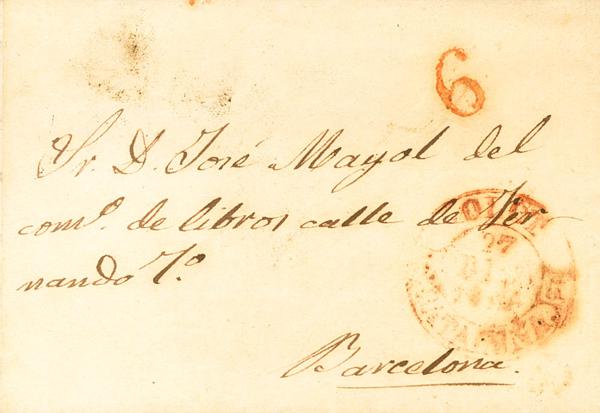 6
Sr. D. José Mayol del
comº. de libros calle de Fer
nando 7º
Barcelona.
27